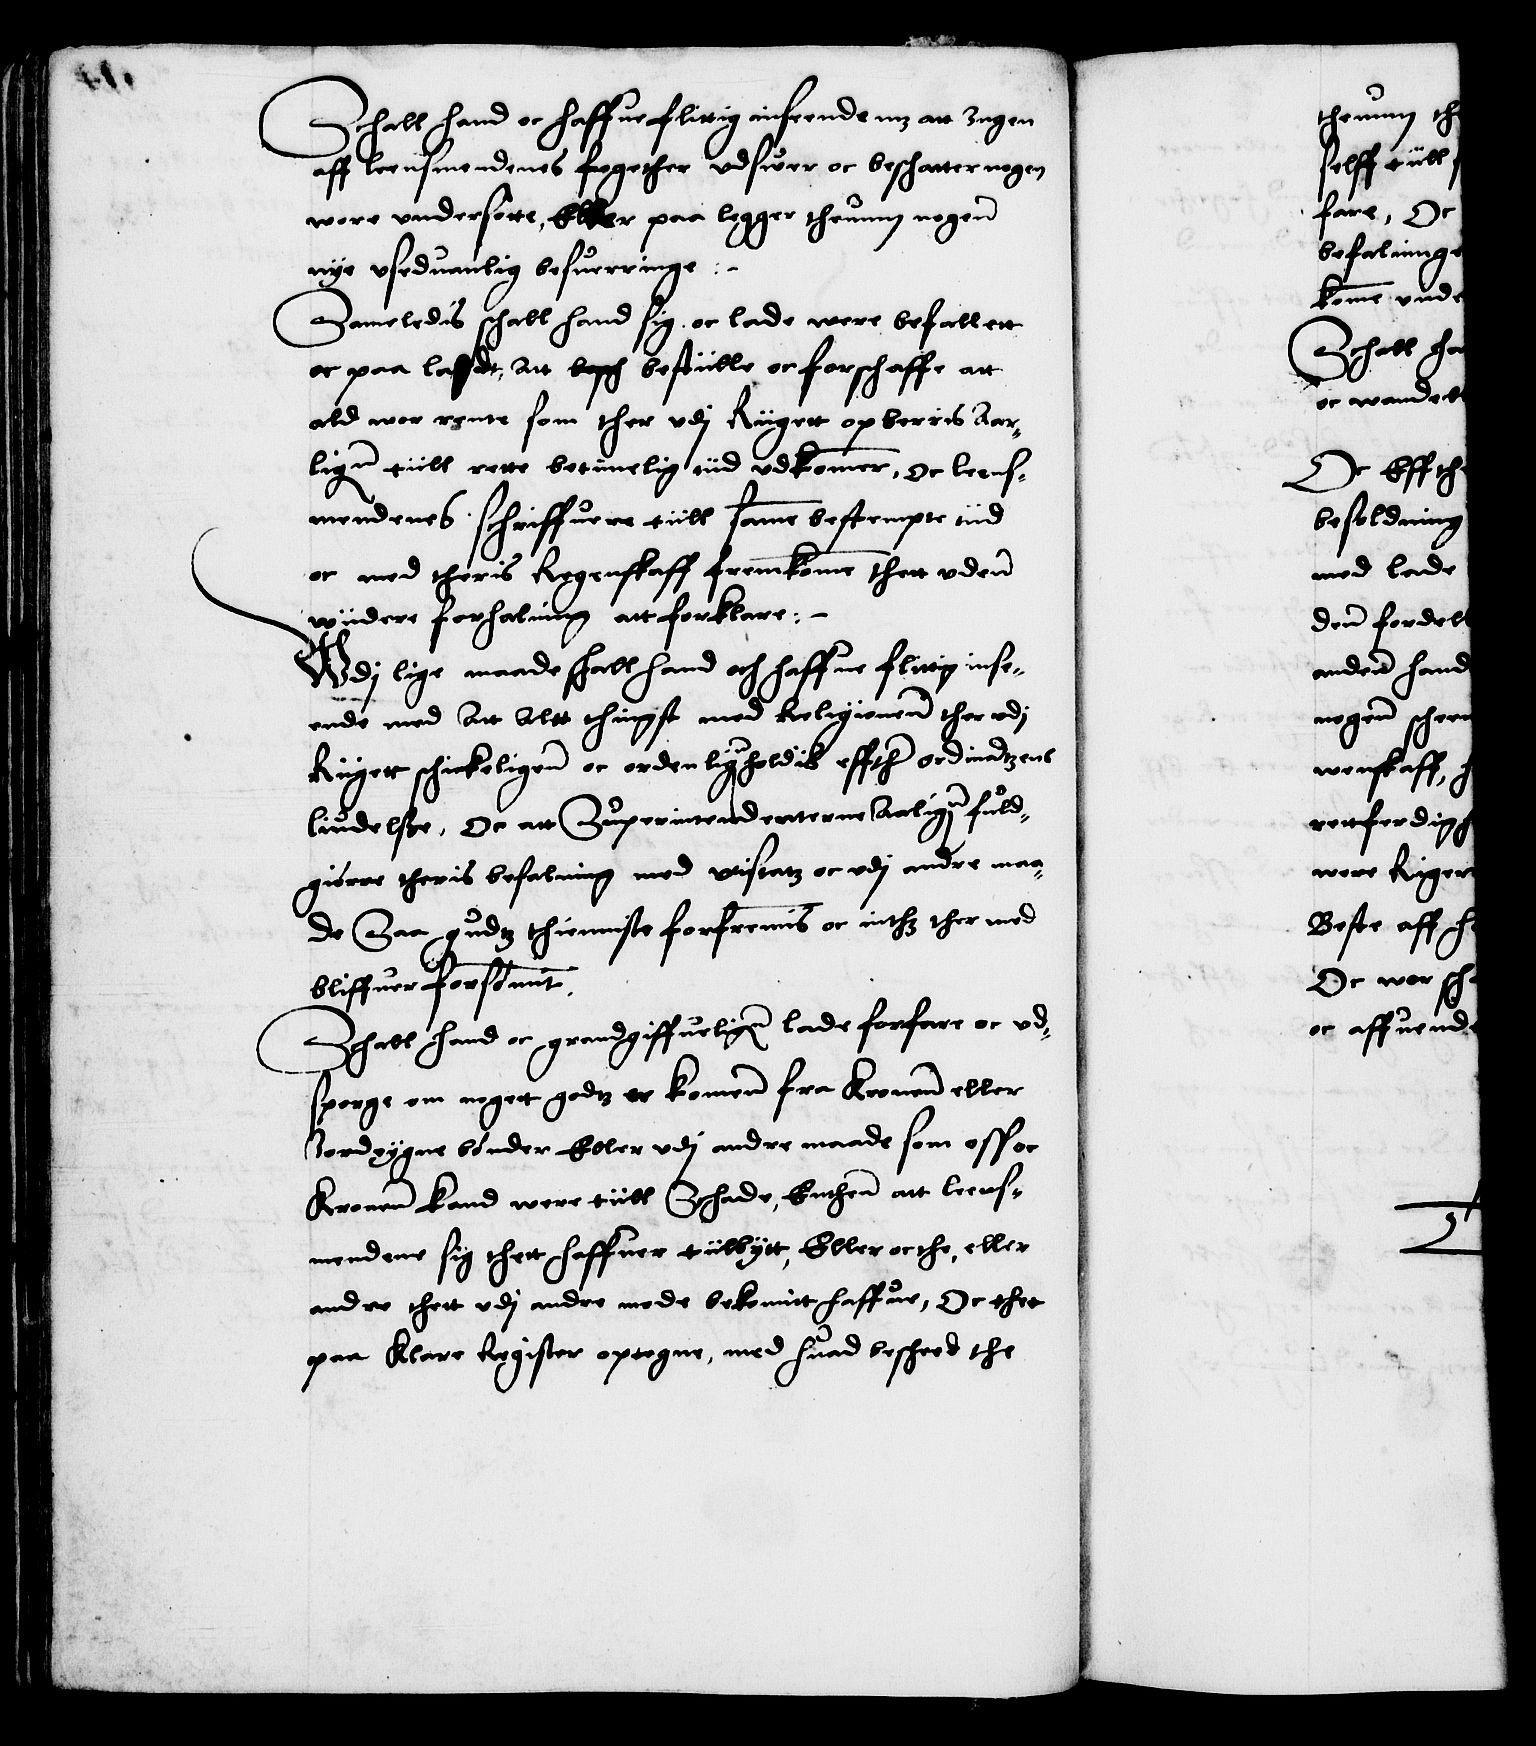 Schall hand oc haffue flittig inseende mz att Ingen
aff leensmendenes fogether udsuer oc beschatter nogen
wore undersotte, Eller paa legger thennum nogenn
nye usedvanlig besuerringe :-
Sameledis schall hand sig oc lade were befallett
oc paa lagdt, Att bestille oc forschaffe att
ald wor rente som ther udj Riigett opberris Aar-
lignn tiill rette betimelig tiid udkommer, Oc leens-
mendenes schriffuere tiill samme bestempte tiid
oc med theris Regenskaff fremkomme thett udenn
wiidere forhalning att forklare :-
Wdj lige maade schall hand och haffue flittig inse-
ende med Att Altt thingst med Religionenn ther udj
Riigett schickeligenn oc ordenlignn holdis effther ordinadtzens
liudelsse, Oc att Superintendenterne Aarlignn fuld-
giorre theris befalning med visitatz oc udj andre maa-
de Saa gudtz thienniste forfremis oc inthz ther med
bliffuer forsømt.
Schall hand oc grandgiffuelignn lade forfare oc ud-
sporge om nogett godtz er komenn fra Kronenn eller
Jordeygne bønder Eller udj andre maade som oss oc
Kronenn kand were tiill Schade, Enthenn att leens-
mendene sig thett haffuer tiilbytt, Eller oc the, eller
andre thett udj andre mode bekomitt haffue, Oc thet
paa Klare Register optegne, med huad bescheed the
thennum the
selff tiill
fare, Oc
befalninge
komme unde
Schall ha
oc wandell
Oc Effthe
besoldning
med lade
denn fordell
andenn hand
nogenn scheen
wenskaff,
rettferdigh
were Riger
Beste aff h
Oc wor sch
oc affuende